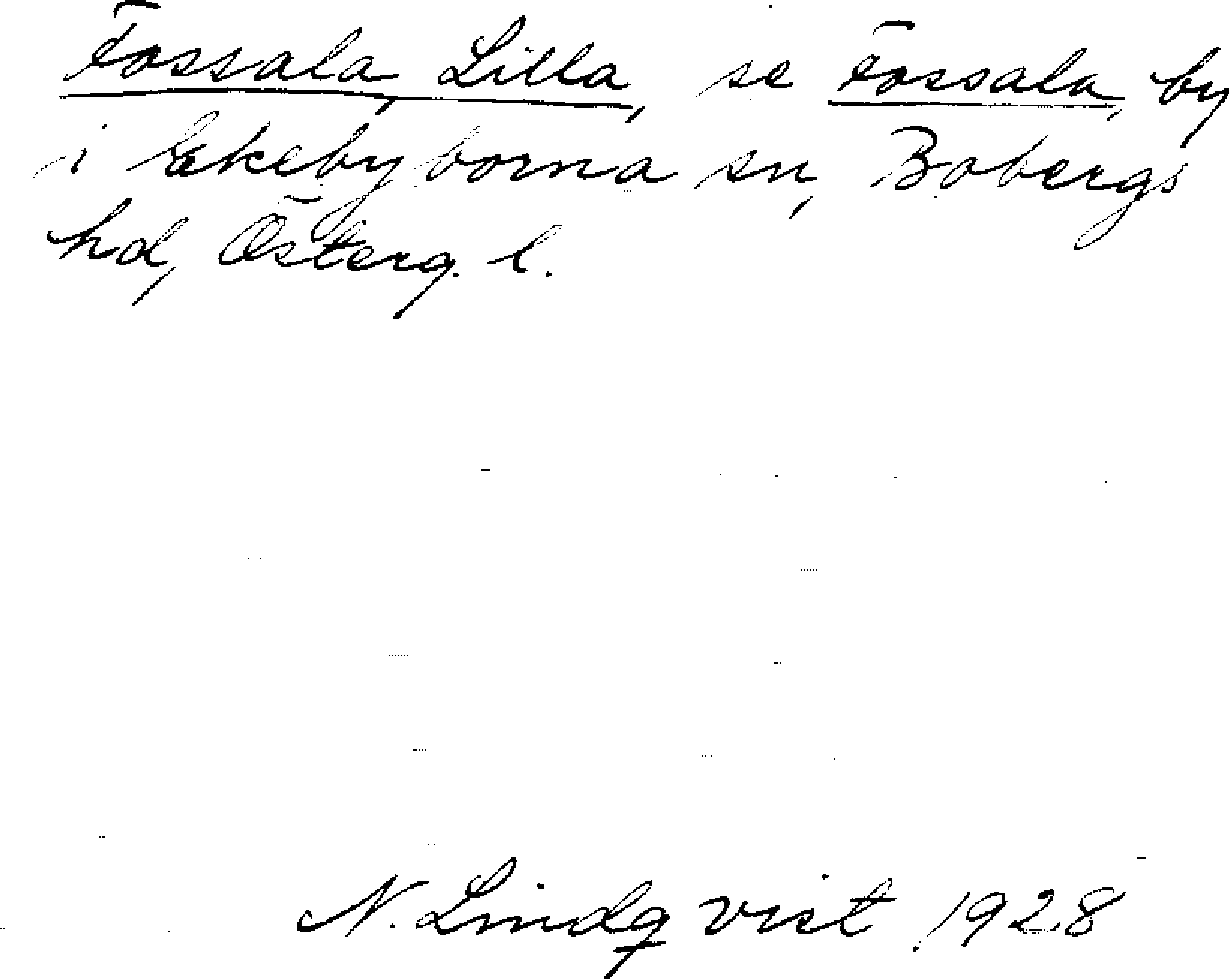 Fossala, Lilla, se Fossala, by
i Ekebyborna sn, Bobergs
hd, Österg. l.
N. Lindqvist 1928